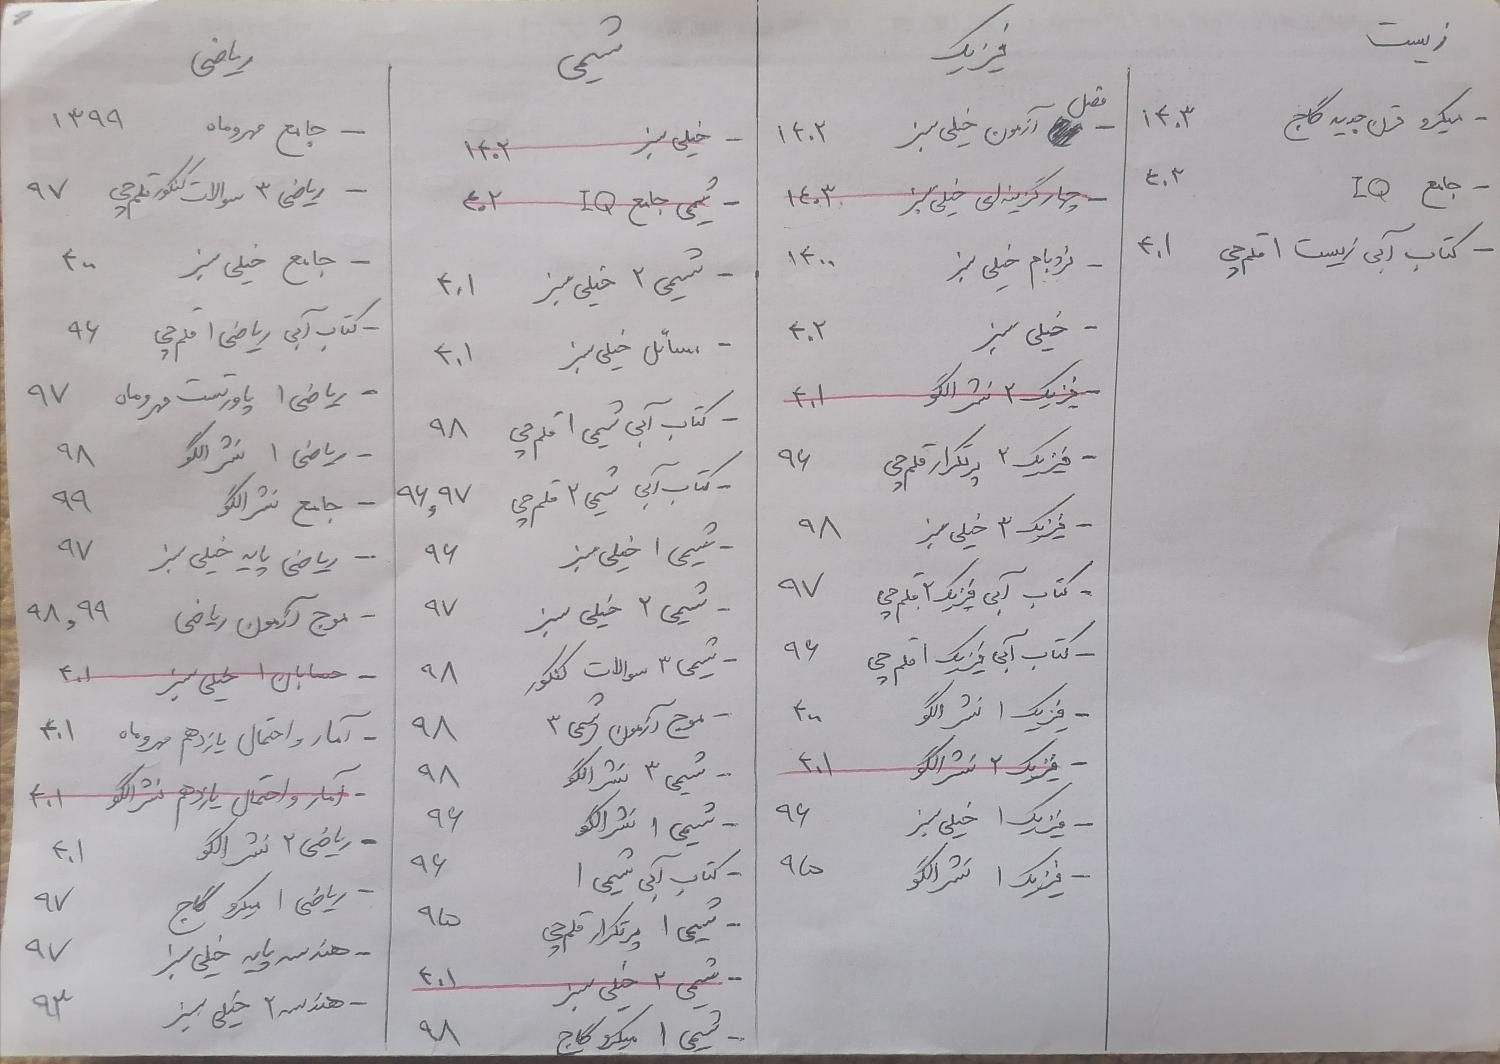 زیست
- میکرو قرن جدید گاج ۱۴۰۳
- جامع IQ ۴۰۲
- کتاب آبی زیست ۱ قلم‌چی ۴۰۱
فیزیک
فصل
- آزمون خیلی سبز ۱۴۰۲
- چهارگزینه‌ای خیلی سبز ۱۴۰۳
- نردبام خیلی سبز ۱۴۰۰
- خیلی سبز ۴۰۲
- فیزیک ۲ نشر الگو ۴۰۱
- فیزیک ۲ پرتکرار قلم‌چی ۹۶
- فیزیک ۳ خیلی سبز ۹۸
- کتاب آبی فیزیک ۲ قلم‌چی ۹۷
- کتاب آبی فیزیک ۱ قلم‌چی ۹۶
- فیزیک ۱ نشر الگو ۴۰۰
- فیزیک ۲ نشر الگو ۴۰۱
- فیزیک ۱ خیلی سبز ۹۶
- فیزیک ۱ نشر الگو ۹۵
شیمی
- خیلی سبز ۱۴۰۲
- شیمی جامع IQ ۴۰۲
- شیمی ۲ خیلی سبز ۴۰۱
- مسائل خیلی سبز ۴۰۱
- کتاب آبی شیمی ۱ قلم‌چی ۹۸
- کتاب آبی شیمی ۲ قلم‌چی ۹۶ و ۹۷
- شیمی ۱ خیلی سبز ۹۶
- شیمی ۲ خیلی سبز ۹۷
- شیمی ۳ سوالات کنکور ۹۸
- موج آزمون شیمی ۳ ۹۸
- شیمی ۳ نشر الگو ۹۸
- شیمی ۱ نشر الگو ۹۶
- کتاب آبی شیمی ۱ ۹۶
- شیمی ۱ پرتکرار قلم‌چی ۹۵
- شیمی ۲ خیلی سبز ۴۰۱
- شیمی ۱ میکرو گاج ۹۸
ریاضی
- جامع مهروماه ۱۳۹۹
- ریاضی ۳ سوالات کنکور قلم‌چی ۹۷
- جامع خیلی سبز ۴۰۰
- کتاب آبی ریاضی ۱ قلم‌چی ۹۶
- ریاضی ۱ پاورتست مهروماه ۹۷
- ریاضی ۱ نشر الگو ۹۸
- جامع نشر الگو ۹۹
- ریاضی پایه خیلی سبز ۹۷
- موج آزمون ریاضی ۹۸ و ۹۹
- حسابان ۱ خیلی سبز ۴۰۱
- آمار و احتمال یازدهم مهروماه ۴۰۱
- آمار و احتمال یازدهم نشر الگو ۴۰۱
- ریاضی ۲ نشر الگو ۴۰۱
- ریاضی ۱ میکرو گاج ۹۷
- هندسه پایه خیلی سبز ۹۷
- هندسه ۲ خیلی سبز ۹۳